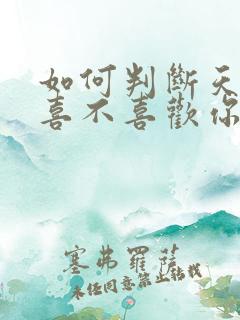 如何判斷天
喜不喜歡你
塞弗羅薩
未经同意禁止转载